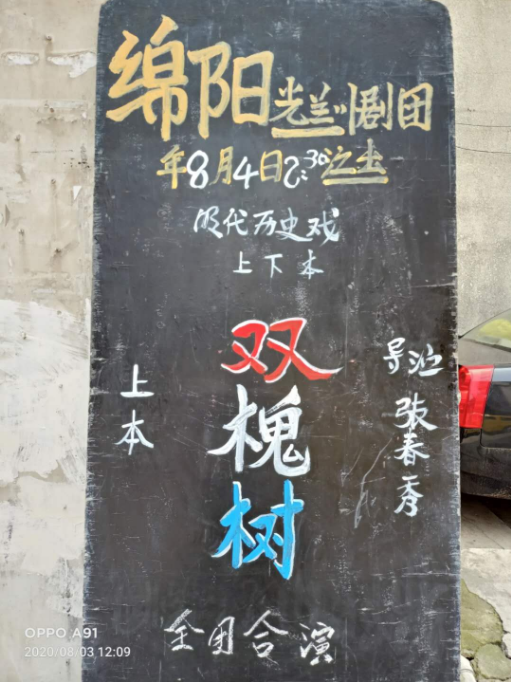 绵阳光兰川剧团
年8月4日2:30分上
明代历史戏
上下本
双槐树
导演 张春秀
上本
全团合演
OPPO A91
2020/08/03 12:09